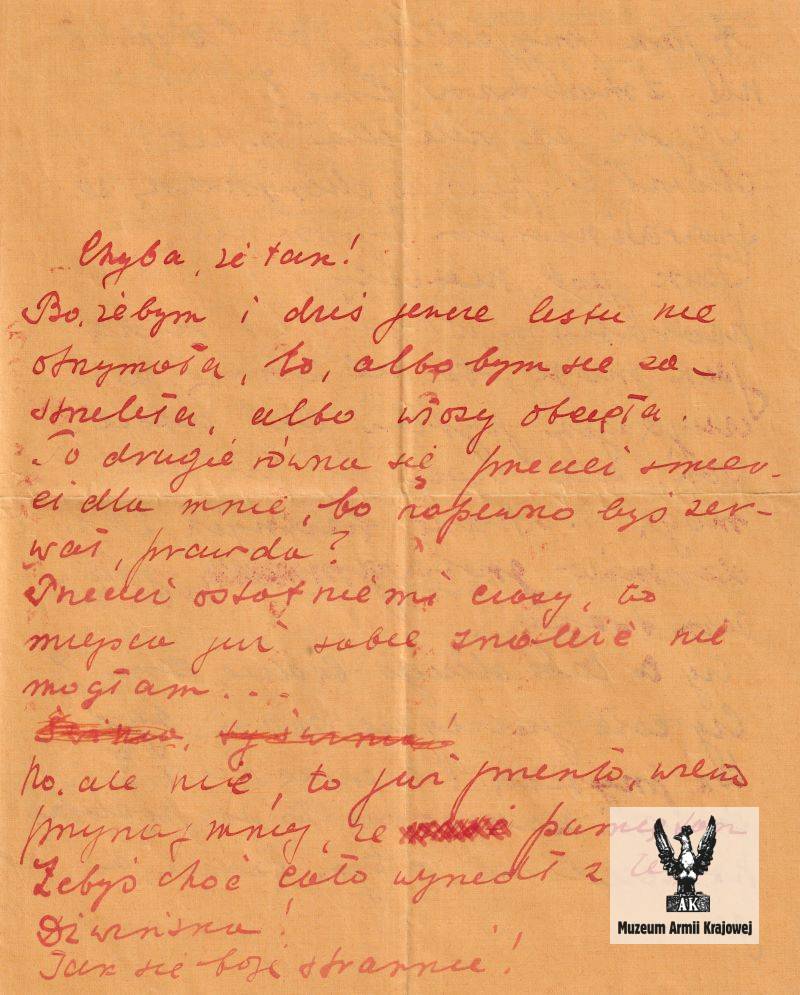 Chyba, że tak!
Bo, żebym i dziś jeszcze listu nie
otrzymała, to, albo bym się za-
strzeliła, albo włosy obcięła.
To drugie równa się przecież śmier-
ci dla mnie, bo napewno byś zer-
wał, prawda?
Przecież ostatniemi czasy, to
miejsca już sobie znaleźć nie
mogłam...
No, ale nie, to już przeszło, wiem
przynajmniej, że
Żebyś choć cało wyszedł z
Dźwińska!
Tak się boję strasznie!
AK
Muzeum Armii Krajowej